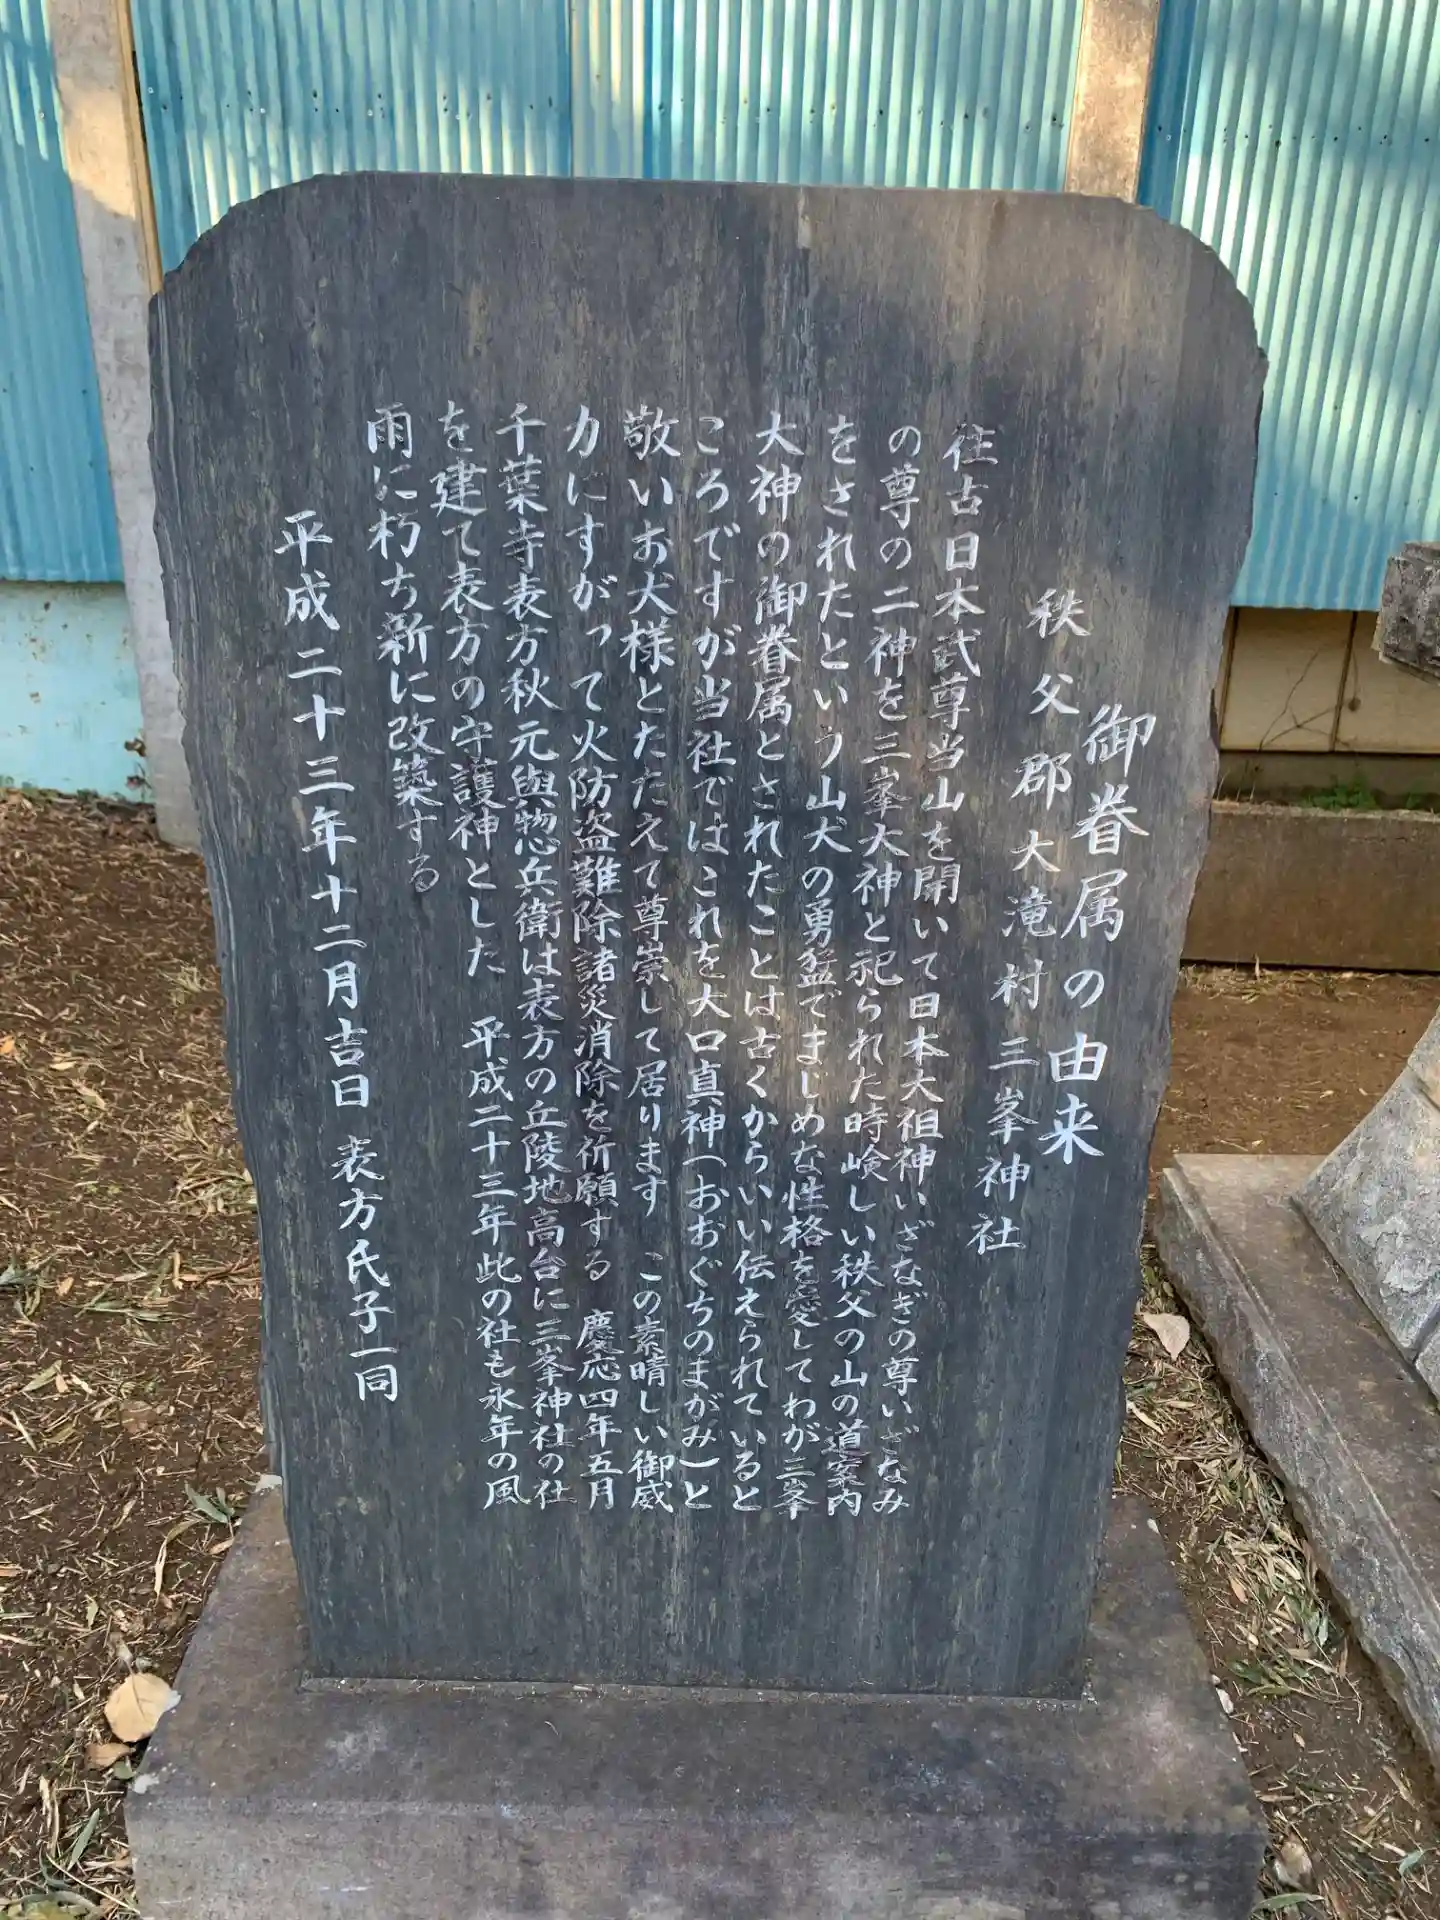 御眷属の由来
秩父郡大滝村三峯神社
往古日本武尊当山を開いて日本大祖神いざなぎの尊いざなみ
の尊の二神を三峯大神と祀られた時峻しい秩父の山の道案内
をされたという山犬の勇猛でまじめな性格を愛してわが三峯
大神の御眷属とされたことは古くからいい伝えられていると
ころですが当社ではこれを大口真神(おおぐちのまがみ)と
敬いお犬様とたたえて尊崇して居ります この素晴しい御威
力にすがって火防盗難除諸災消除を祈願する 慶応四年五月
千葉寺表方秋元與惣兵衛は表方の丘陵地高台に三峯神社の社
を建て表方の守護神とした 平成二十三年此の社も永年の風
雨に朽ち新に改築する
平成二十三年十二月吉日 表方氏子一同